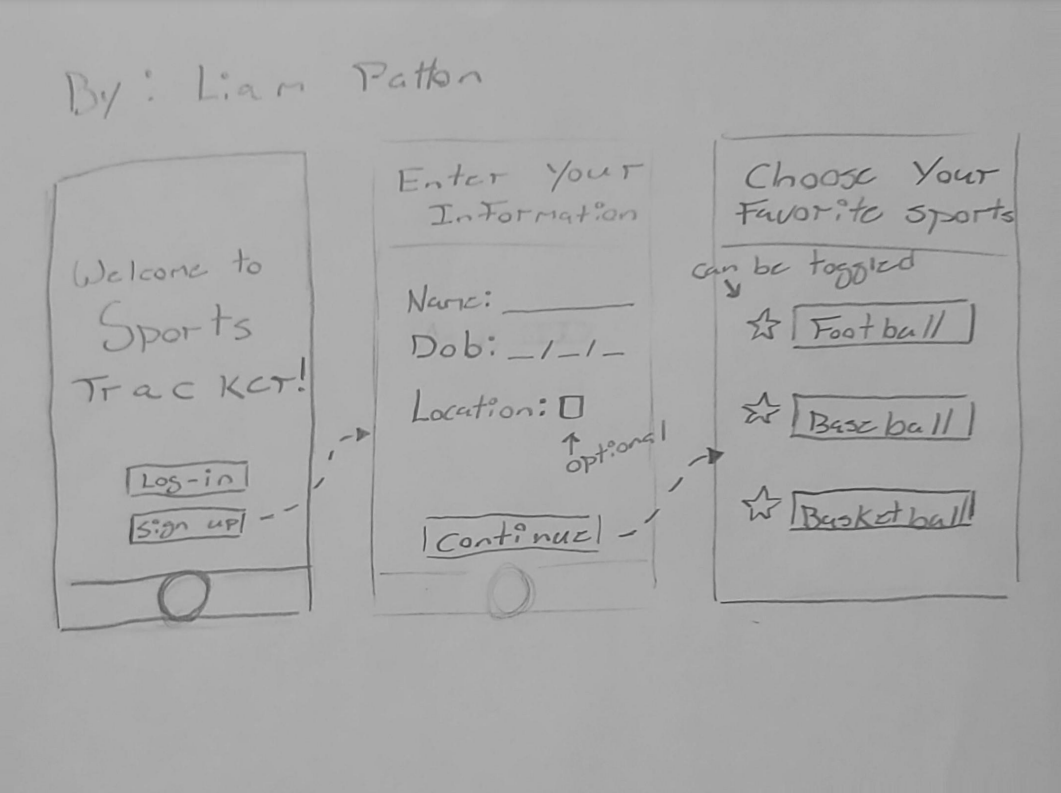 By: Liam Patton
Welcome to
Sports
Tracker!
Log-in
Sign up
Enter Your
Information
Name:
Dob: _/_/_
Location:
optional
Continue
Choose Your
Favorite sports
can be toggled
Football
Baseball
Basketball